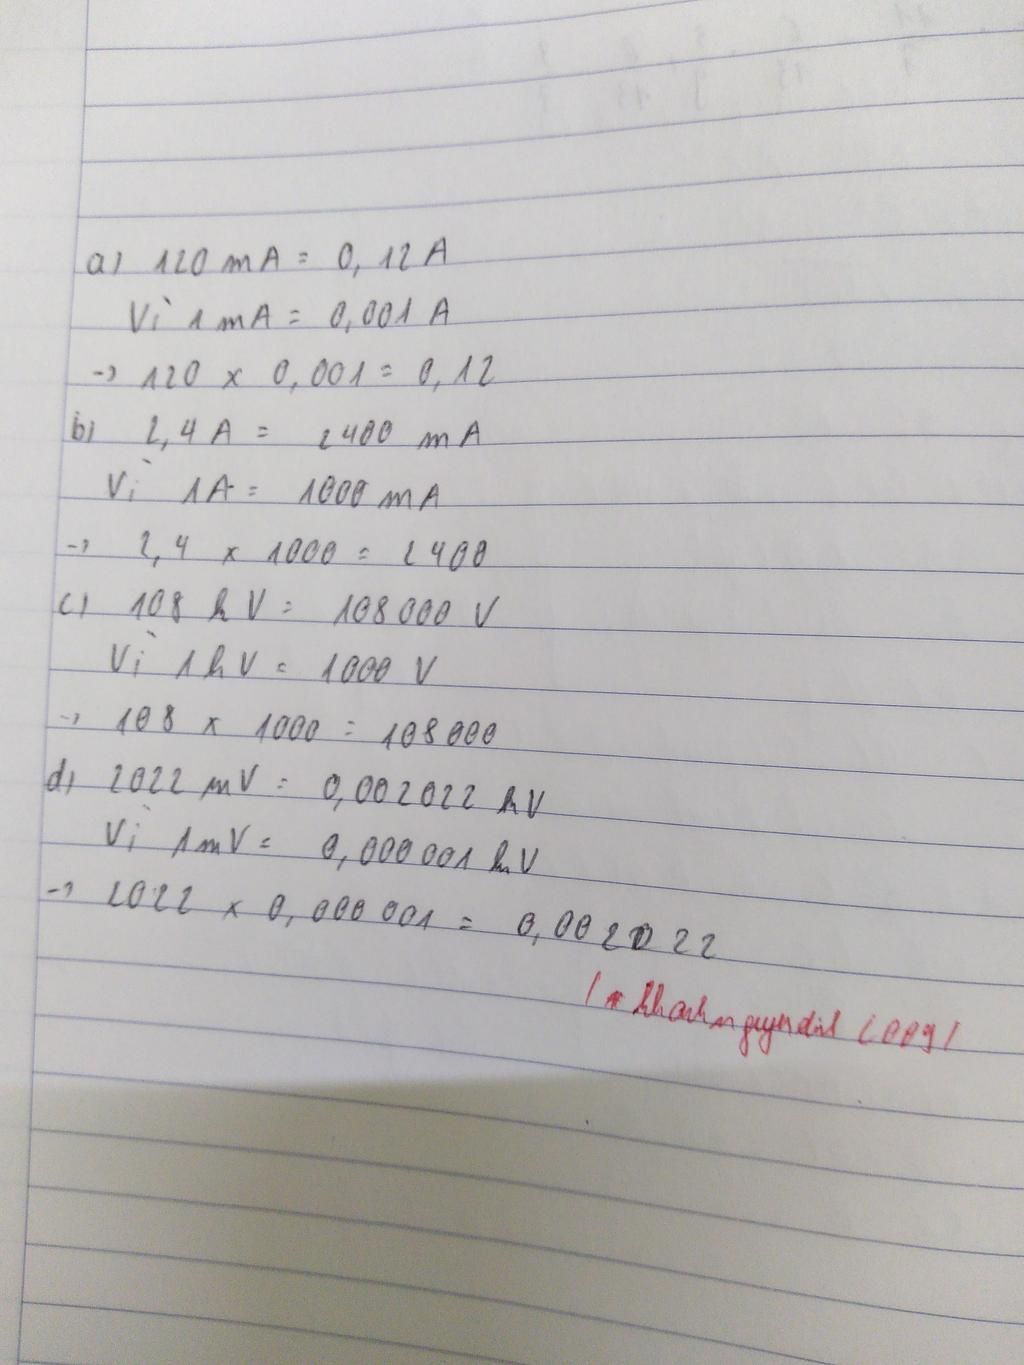 a) 120 mA = 0,12 A
Vì 1 mA = 0,001 A
-> 120 x 0,001 = 0,12
b) 2,4 A = 2400 mA
Vì 1A = 1000 mA
-> 2,4 x 1000 = 2400
c) 108 kV = 108000 V
Vì 1 kV = 1000 V
-> 108 x 1000 = 108000
d) 2022 mV = 0,002022 kV
Vì 1 mV = 0,000001 kV
-> 2022 x 0,000001 = 0,002022